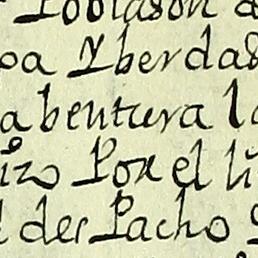 Poblason d
pa Y berdad
a bentura l
izo Por el li
l der Pacho